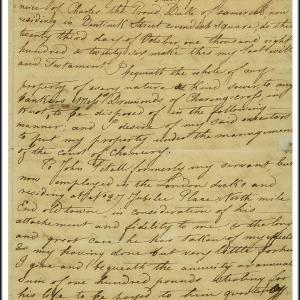 niece of Charles the Proud Duke of Somerset now
residing in Bentinck Street Cavendish Square, do this
twenty third day of October, one thousand and eight
hundred & twenty six make this my last will
and Testament. I bequeath the whole of my
property of every nature & Kind to my
Bankers Messrs Drummonds of Charing Cross in
trust, to be disposed of in the following
manner, and I desire of my said executors
to put my property under the management
of the court of Chancery.
To John Fitall formerly my servant but
now employed in the London docks and
residing at No 27 Jubilee Place North mile
End old town, in consideration of his
attachment and fidelity to me & the long
and great care he has taken of my effects
& my having done but very little for him
I give and bequeath the annuity or annual
sum of one hundred pounds Sterling for
his life to be paid to him quarterly